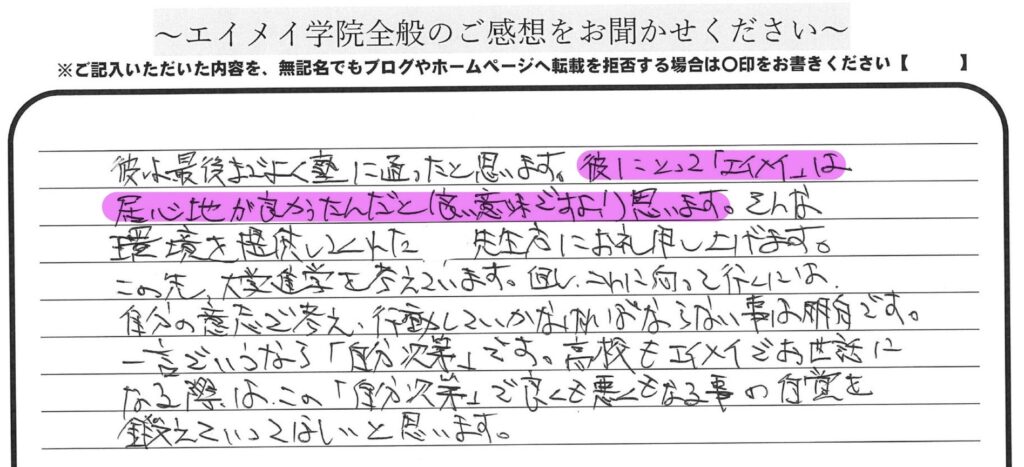 ～エイメイ学院全般のご感想をお聞かせください～
※ご記入いただいた内容を、無記名でもブログやホームページへ転載を拒否する場合は〇印をお書きください【　　　】
彼は最後までよく塾に通ったと思います。彼にとって「エイメイ」は
居心地が良かったんだと(良い意味ですよ!)思います。そんな
環境を提供してくれた、先生方にお礼申し上げます。
この先、大学進学を考えています。但し、これに向って行くには、
自分の意志で考え、行動していかなければならない事は明白です。
一言でいうなら「自分次第」です。高校もエイメイでお世話に
なる際は、この「自分次第」で良くも悪くもなる事の自覚を
鍛えていってほしいと思います。